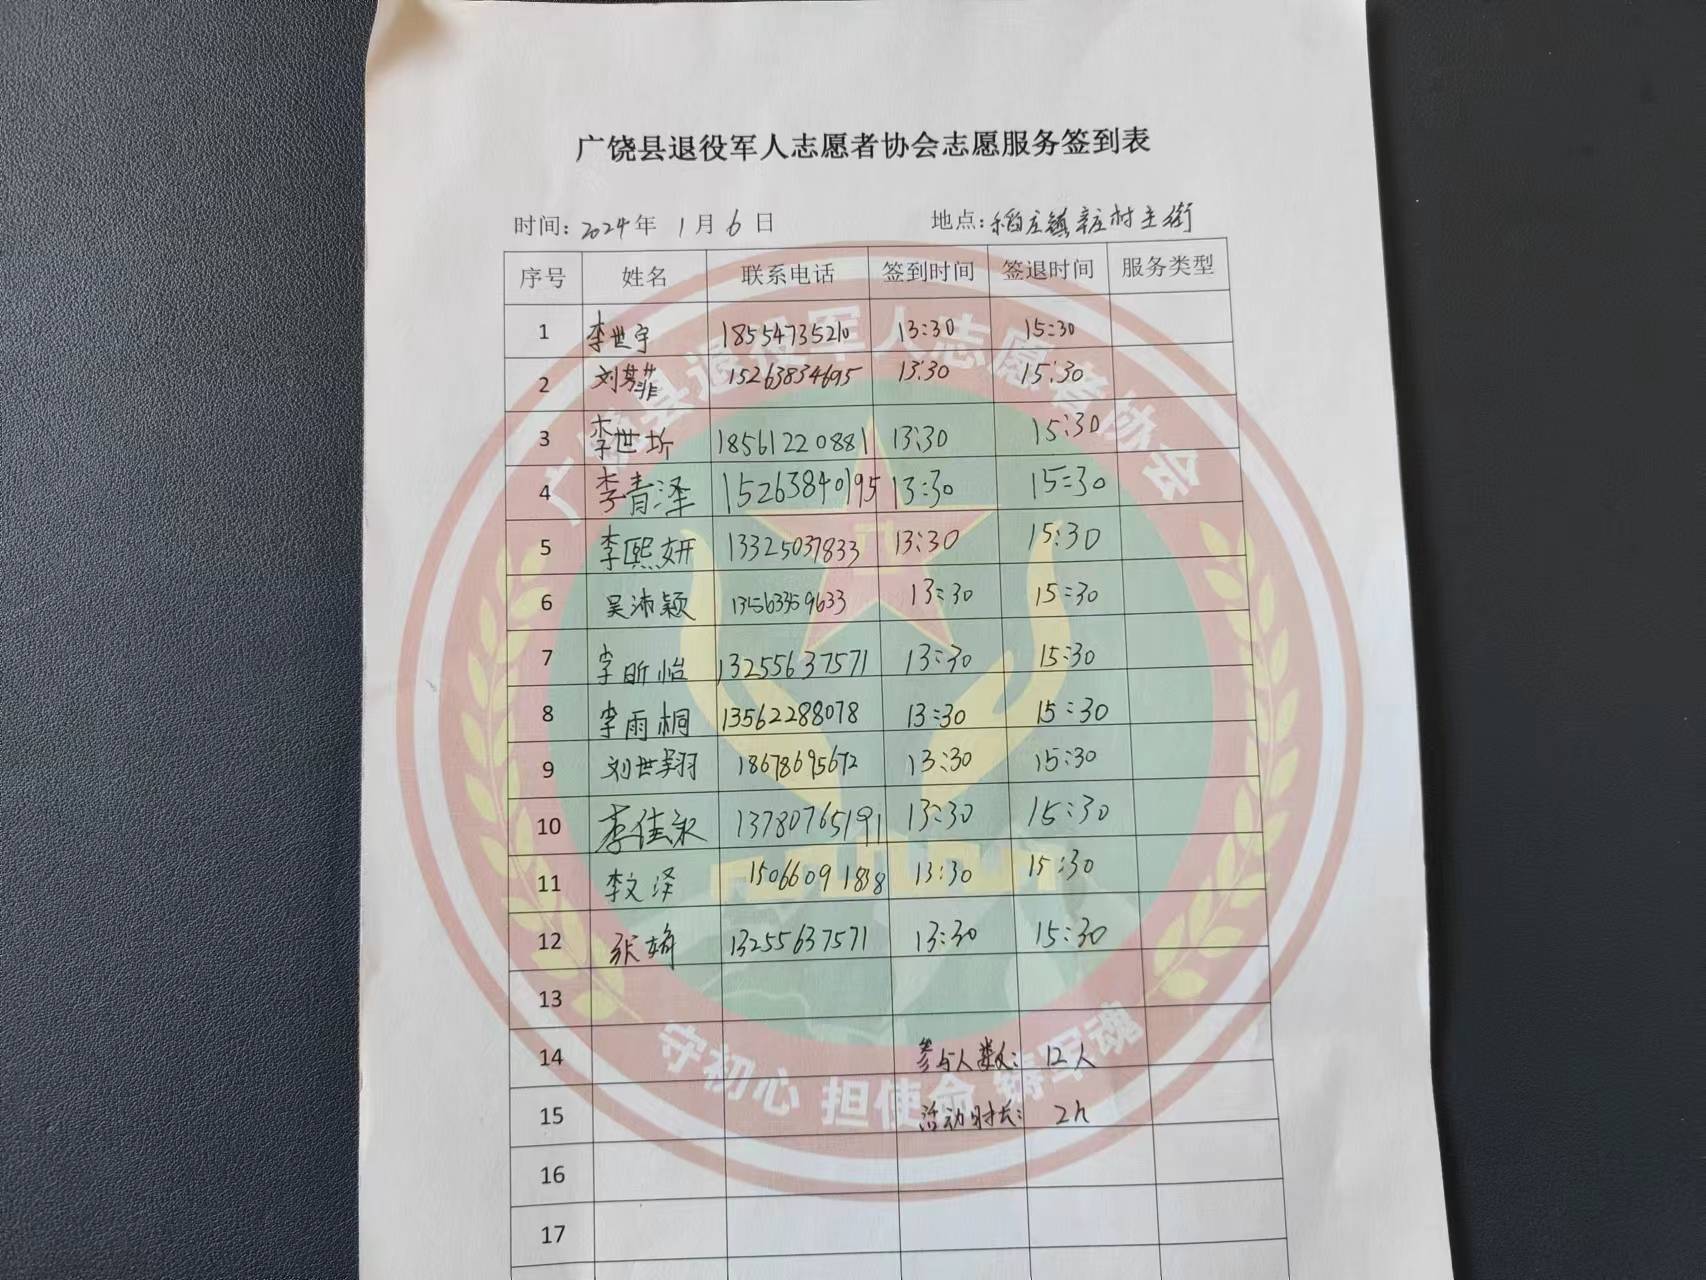 广饶县退役军人志愿者协会志愿服务签到表
时间: 2024年 1月6日 地点: 稻庄镇 村主街
序号 姓名 联系电话 签到时间 签退时间 服务类型
1 李世宇 18554735210 13:30 15:30
2 刘梦菲 15263834695 13:30 15:30
3 李世圻 18561220881 13:30 15:30
4 李青泽 15263840195 13:30 15:30
5 李熙妍 13325037833 13:30 15:30
6 吴沛颖 13563359633 13:30 15:30
7 李昕怡 13255637571 13:30 15:30
8 李雨桐 13562288078 13:30 15:30
9 刘世翔 18678695672 13:30 15:30
10 李佳永 13780765191 13:30 15:30
11 李文泽 15066091838 13:30 15:30
12 张 13255637571 13:30 15:30
13
14 参与人数: 12人
15 活动时长: 2h
16
17
广饶县退役军人志愿者协会
守初心 担使命 铸军魂